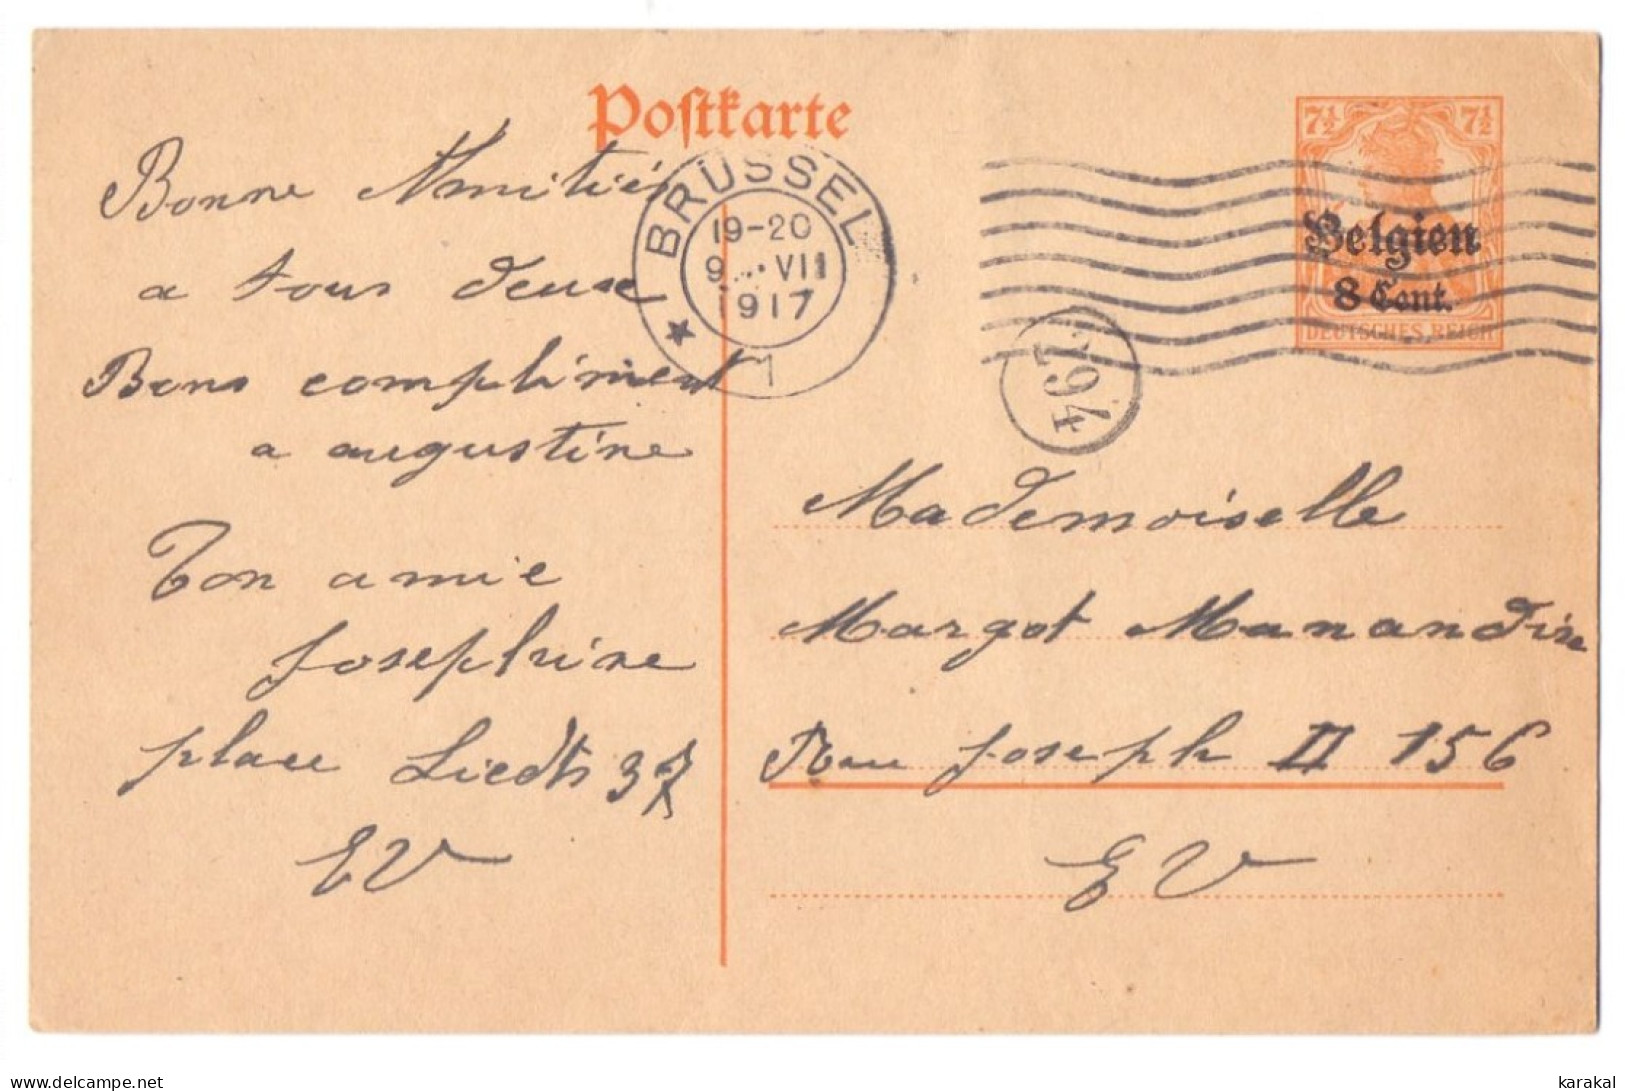 Postkarte
7½ 7½
Belgien
8 Cent.
DEUTSCHES REICH
BRÜSSEL
19-20
9 VII
1917
1
Bonne Amitiés
a tous deux
Bons compliment
a augustine
Ton amie
Josephine
place Liedts 37
EV
Mademoiselle
Margot
Rue Joseph II 156
EV
www.delcampe.net
karakal